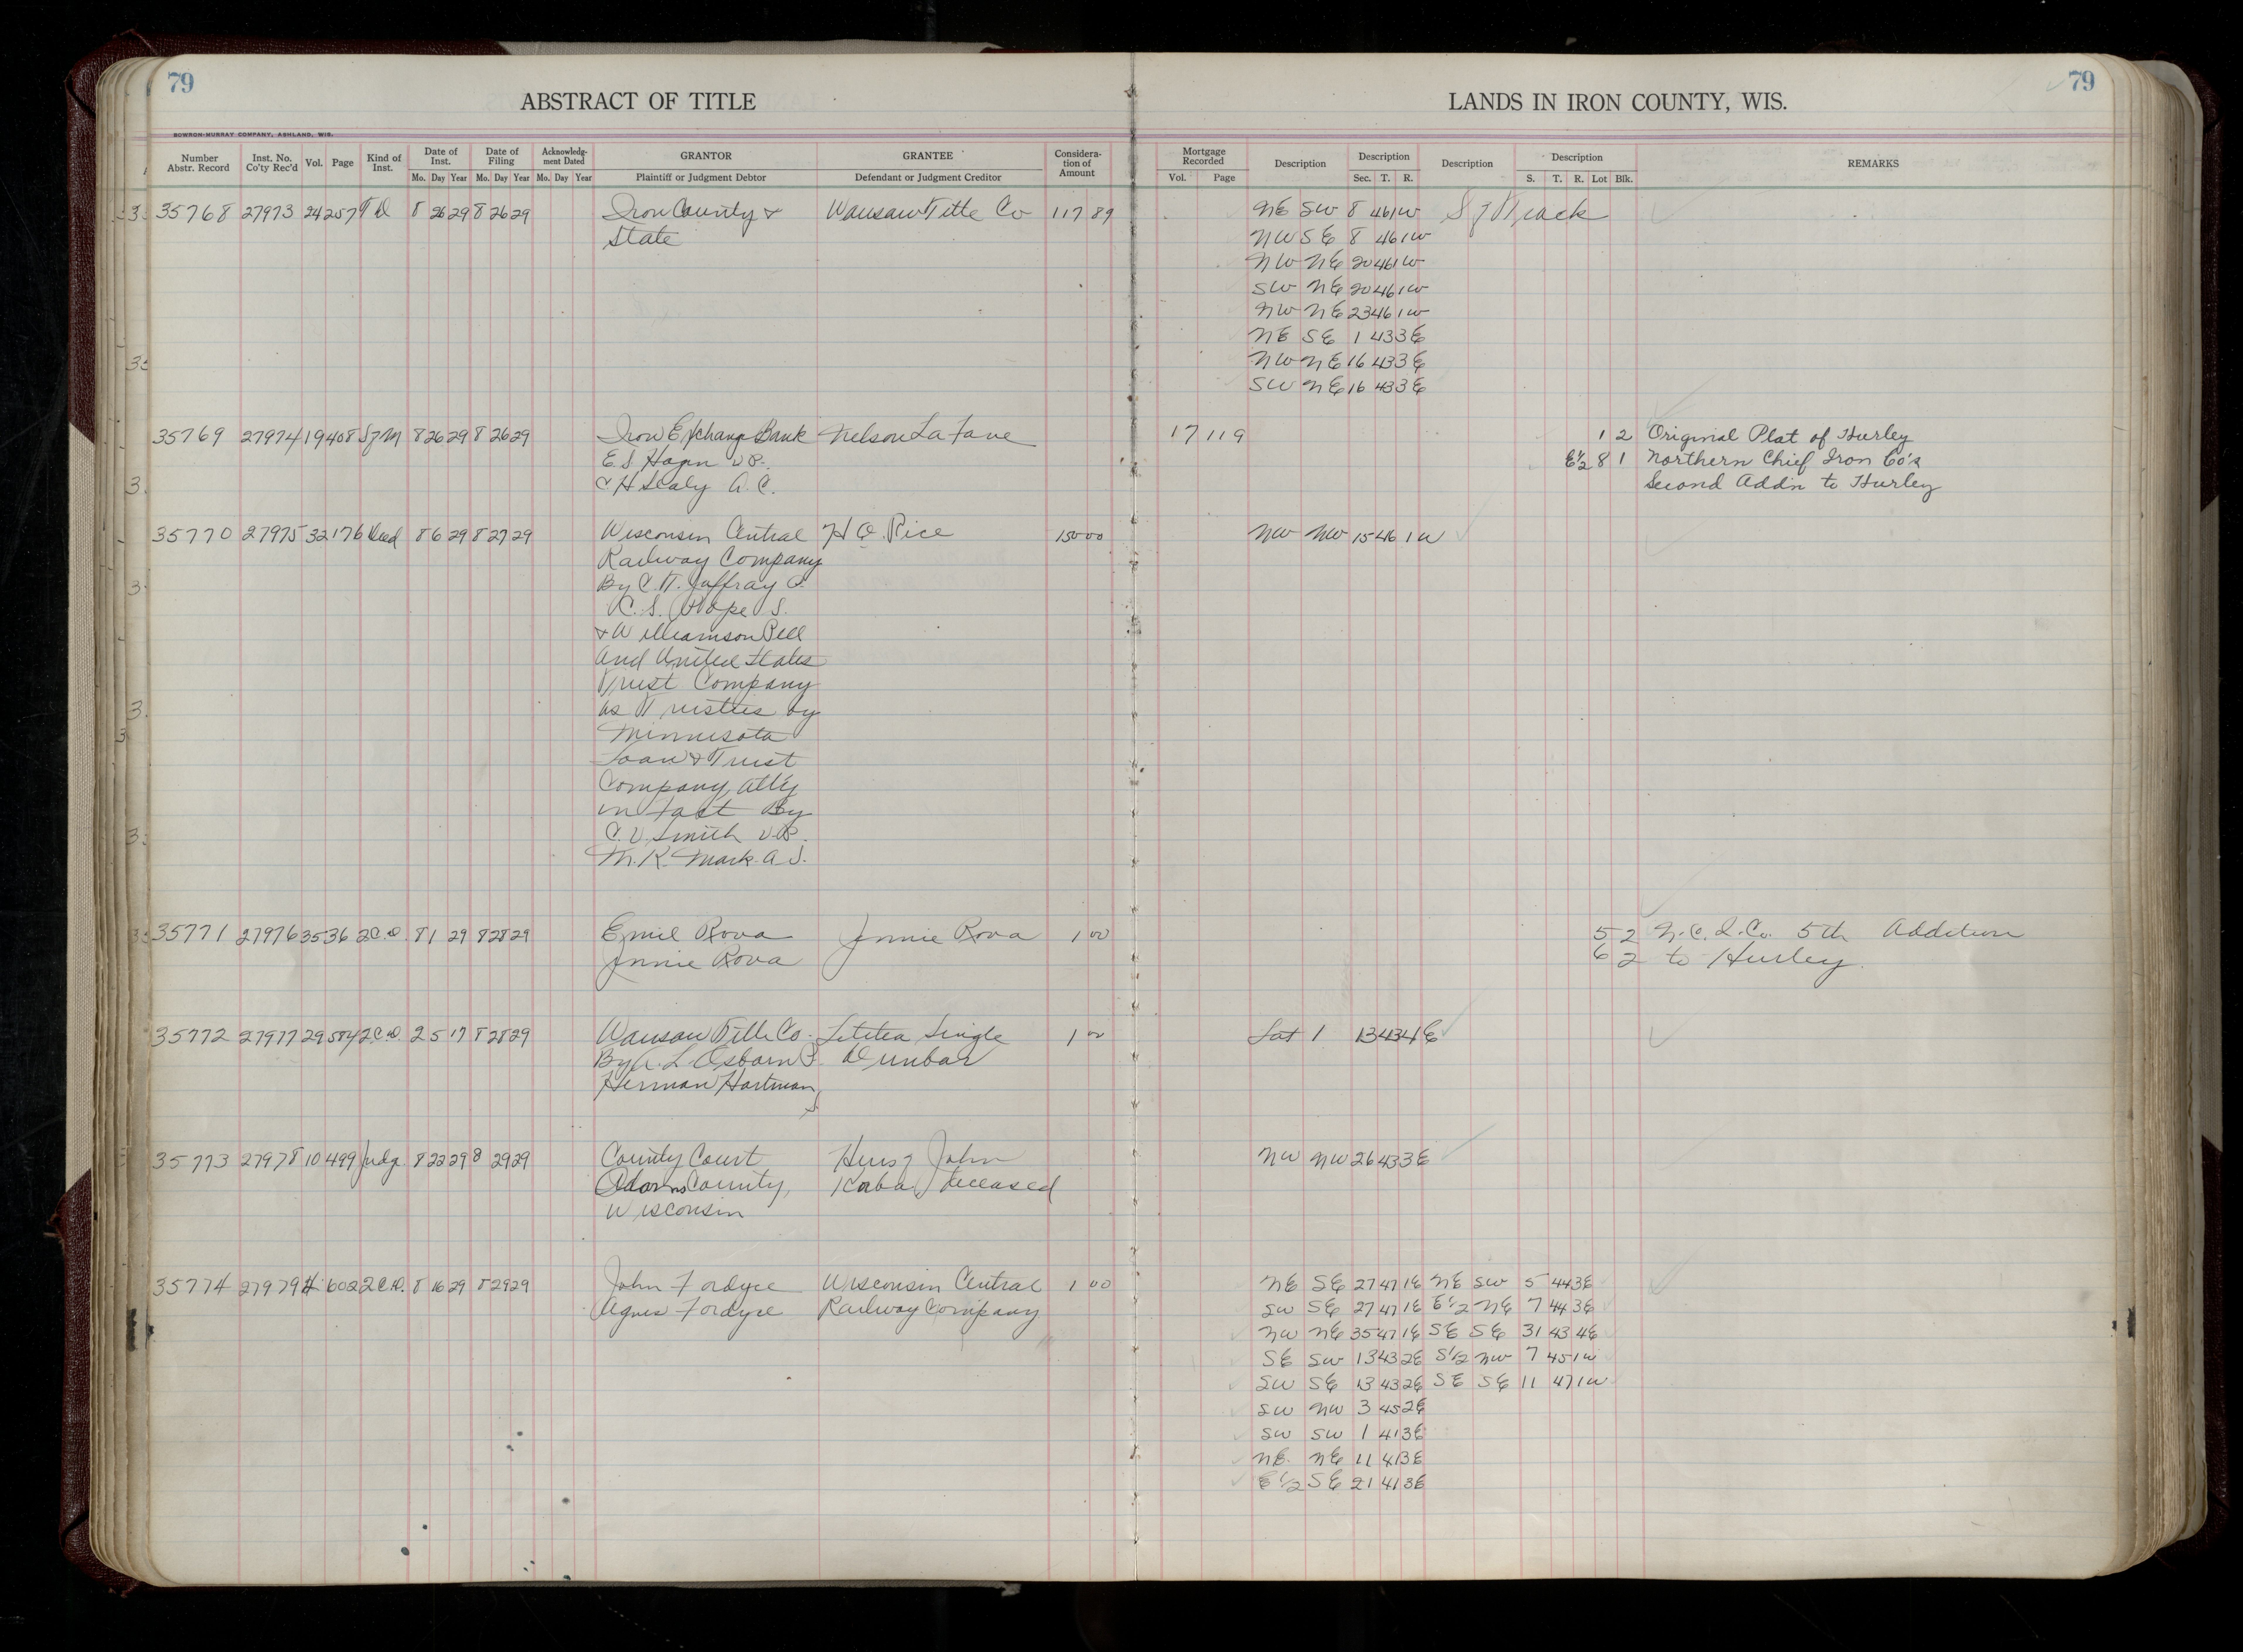 79
ABSTRACT OF TITLE
LANDS IN IRON COUNTY, WIS.
79
BOWRON-MURRAY COMPANY, ASHLAND, WIS.
Number Abstr. Record | Inst. No. Co'ty Rec'd | Vol. | Page | Kind of Inst. | Date of Inst. Mo. Day Year | Date of Filing Mo. Day Year | Acknowledg-ment Dated Mo. Day Year | GRANTOR Plaintiff or Judgment Debtor | GRANTEE Defendant or Judgment Creditor | Considera-tion of Amount | Mortgage Recorded Vol. Page | Description | Description Sec. T. R. | Description | Description S. T. R. Lot Blk. | REMARKS
35768 27973 24 257 T D 8 26 29 8 26 29 Iron County & Wausau Title Co 117 89 NE SW 8 46 1W
State NW SE 8 46 1W
NW NE 20 46 1W
SW NE 20 46 1W
NW NE 23 46 1W
NE SE 1 43 3E
NW NE 16 43 3E
SW NE 16 43 3E
35769 27974 19 408 S of M 8 26 29 8 26 29 Iron Exchange Bank Nelson LaFave 17 119 1 2 Original Plat of Hurley
E.S. Hagen V.P. E½ 8 1 Northern Chief Iron Co's
C H Sealy A.C. Second Addn to Hurley
35770 27975 32 176 Deed 8 6 29 8 27 29 Wisconsin Central H O. Rice 150 00 NW NW 15 46 1W
Railway Company
By C.T. Jaffray P.
C.S. Pope S.
& Williamson Pell
and United States
Trust Company
as Trustees by
Minnesota
Loan & Trust
Company, atty
in fact By
C.V. Smith V.P.
M.K. Mark A S.
35771 27976 35 36 2C.D. 8 1 29 8 28 29 Emil Rova Jennie Rova 1 00 5 2 N.C.I.Co. 5th Addition
Jennie Rova 6 2 to Hurley.
35772 27977 29 584 2C.D. 2 5 17 8 28 29 Wausau Title Co. Letitea Single 1 00 Lot 1 13 43 4E
By A. L Osborn P. Dunbar
Herman Hartman,
S.
35773 27978 10 499 Judg. 8 22 29 8 29 29 County Court Heirs of John NW NW 26 43 3E
Adams County, Koba deceased
Wisconsin
35774 27979 602 2C.D. 8 16 29 8 29 29 John Fordyce Wisconsin Central 1 00 NE SE 27 47 1E NE SW 5 44 3E
Agnes Fordyce Railway Company SW SE 27 47 1E E½ NE 7 44 3E
NW NE 35 47 1E SE SE 31 43 4E
SE SW 13 43 2E S½ NW 7 45 1W
SW SE 13 43 2E SE SE 11 47 1W
SW NW 3 45 2E
SW SW 1 41 3E
NE. NE 11 41 3E
E½ SE 21 41 3E